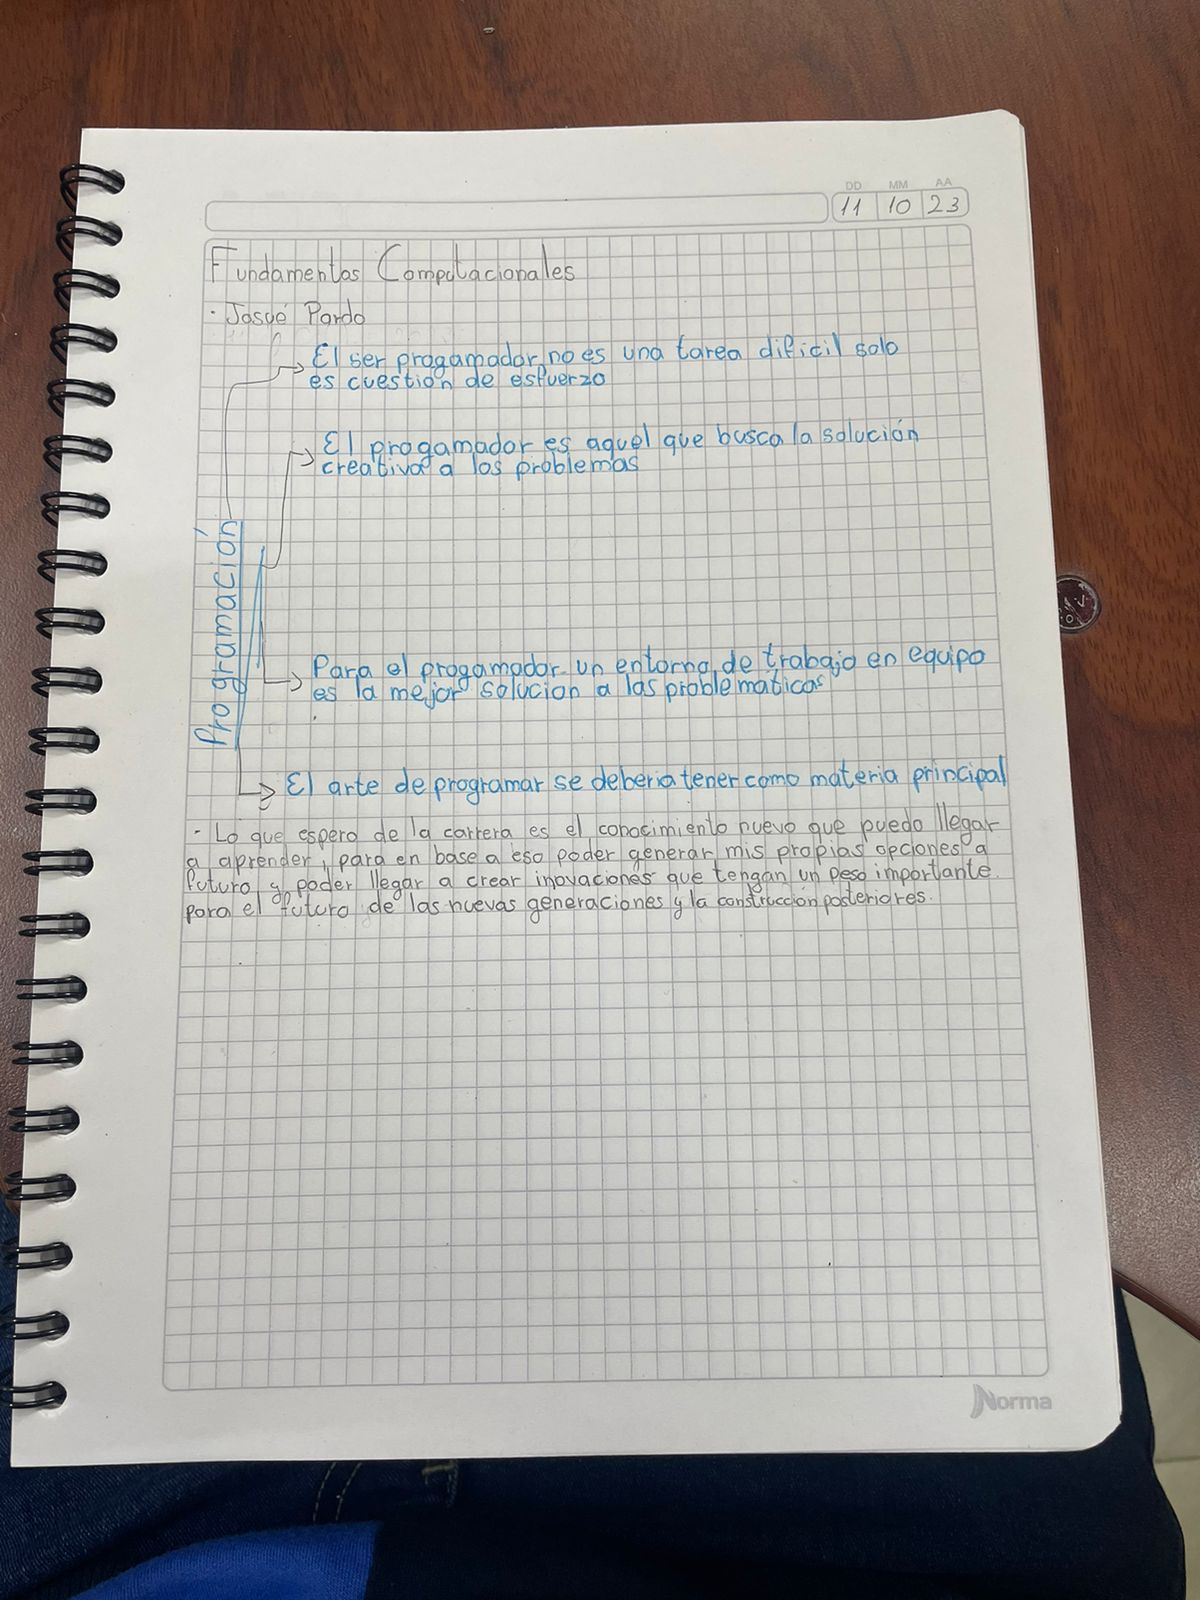 DD MM AA
11 10 23
Fundamentos Computacionales
· Josué Pardo
El ser progamador, no es una tarea dificil solo
es cuestión de esfuerzo
El progamador es aquel que busca la solución
creativa a los problemas
Programación
Para el progamador un entorno de trabajo en equipo
es la mejor solucion a las problematicas
El arte de programar se deberia tener como materia principal
- Lo que espero de la carrera es el conocimiento nuevo que puedo llegar
a aprender, para en base a eso poder generar mis propias opciones a
futuro y poder llegar a crear inovaciones que tengan un peso importante
para el futuro de las nuevas generaciones y la construcción posteriores.
Norma